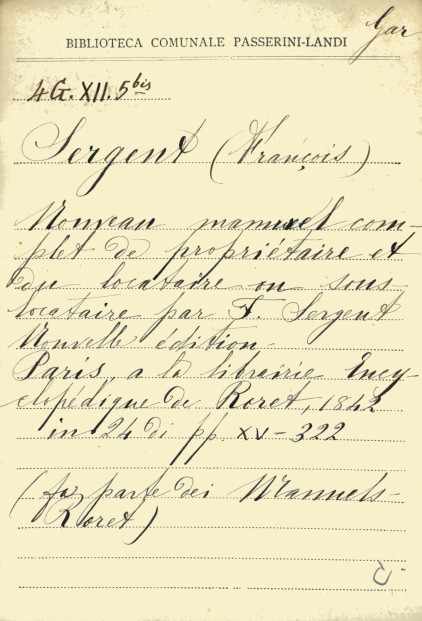 Gar
BIBLIOTECA COMUNALE PASSERINI-LANDI
4G.XII.5bis
Sergent (François)
Nouveau manuel com-
plet de propriétaire et
du locataire ou sous
locataire par F. Sergent
Nouvelle édition-
Paris, a la librairie Ency-
clopédique de Roret, 1842
in 24 di pp. XV-322
(fa parte dei Manuels-
Roret)